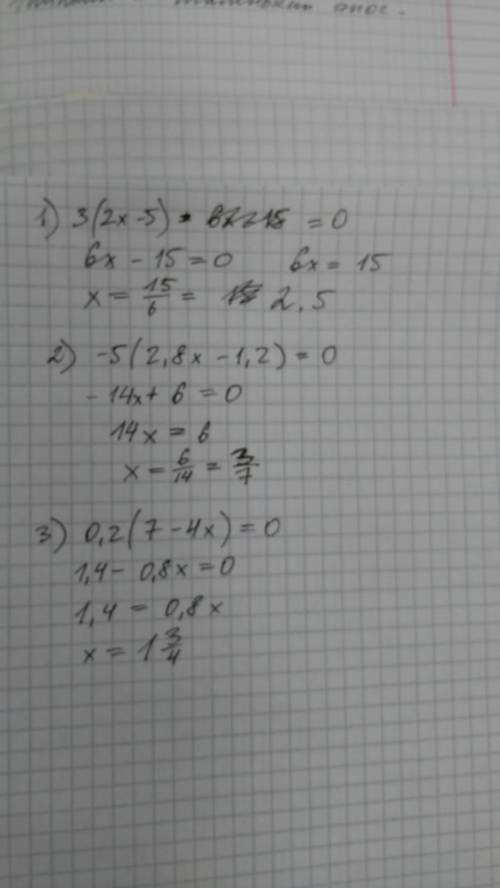 эпос.
1) 3(2x-5) = 0
6x - 15 = 0 6x = 15
x = 15/6 = 2,5
2) -5(2,8x - 1,2) = 0
- 14x + 6 = 0
14x = 6
x = 6/14 = 3/7
3) 0,2(7 - 4x) = 0
1,4 - 0,8x = 0
1,4 = 0,8x
x = 1 3/4